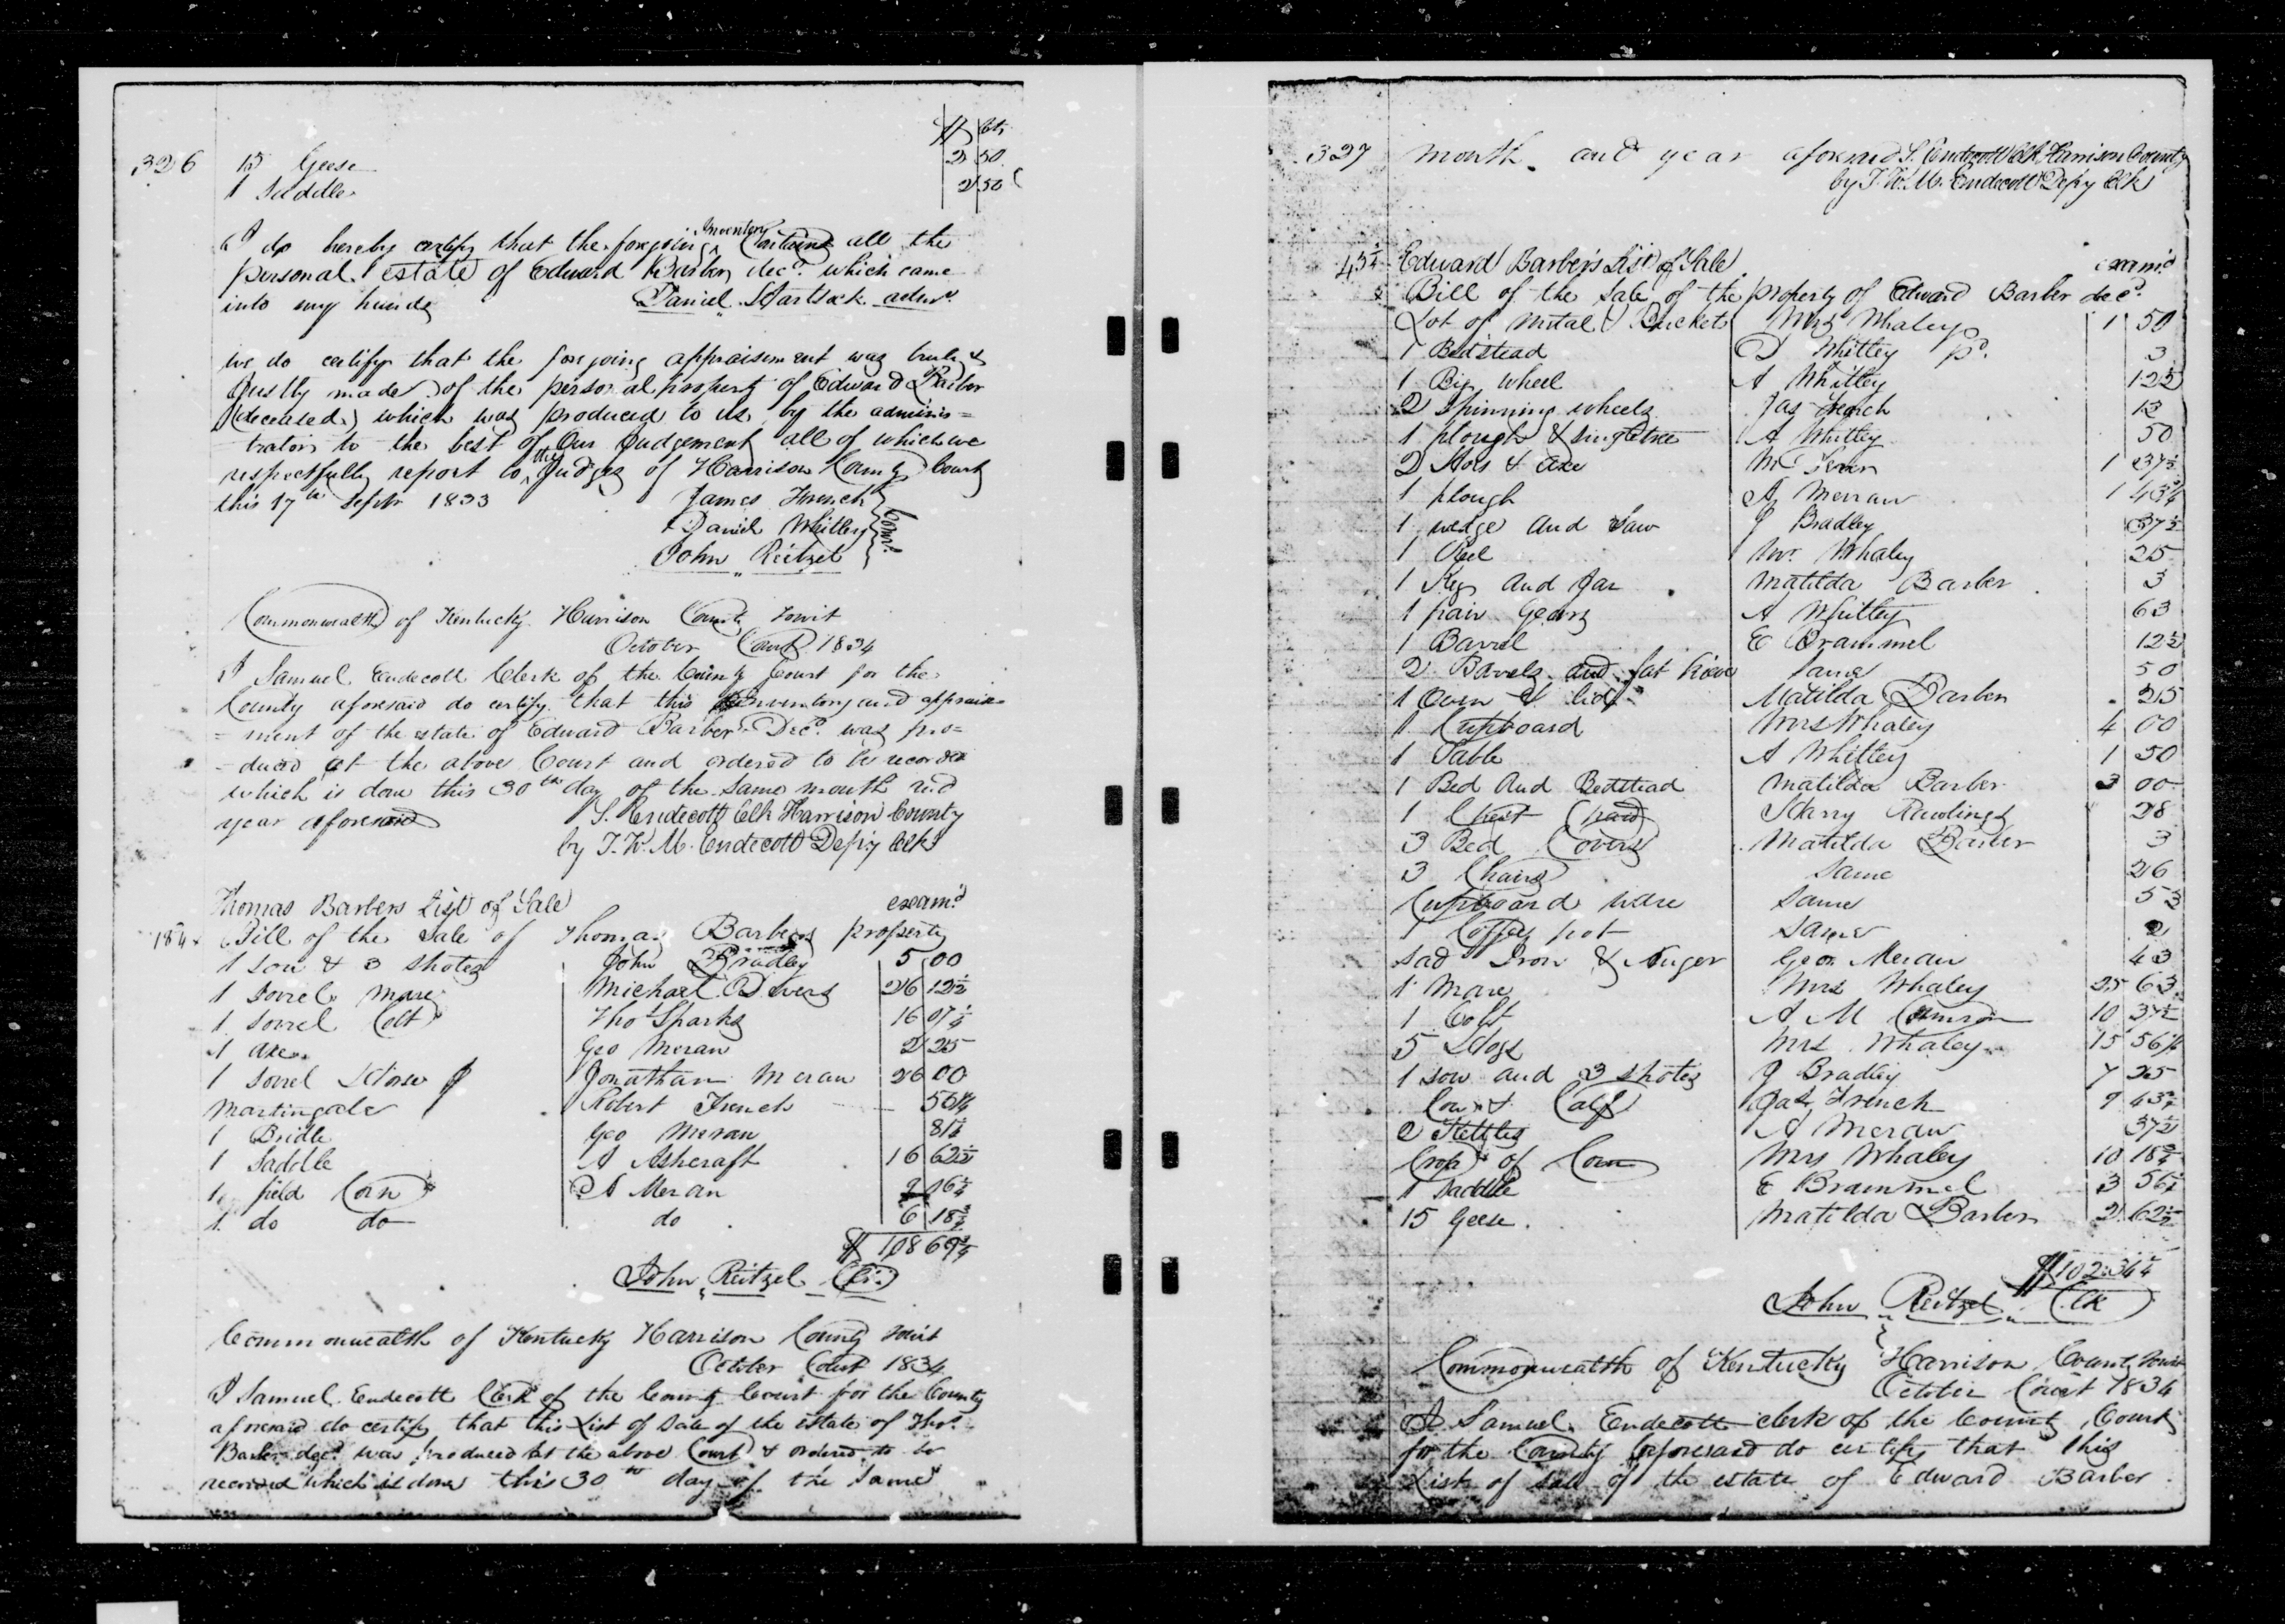 $ | cts
326 15 Geese 2 50
1 Saddle 2 50
I do hereby certify that the foregoing Inventory Contains all the
personal estate of Edward Barber decd. which came
into my hands Daniel Hartsock admr.
we do certify that the foregoing appraisement was truly &
Justly made of the personal property of Edward Barber
(deceased) which was produced to us by the adminis=
trator to the best of Our Judgement all of which we
respectfully report to the Judges of Harrison County Court
this 17th Septr 1833 James French
Daniel Whitley
John Reitzel
Comrs.
Commonwealth of Kentucky Harrison County towit
October Court 1834
I Samuel Endecott Clerk of the County Court for the
County aforesaid do certify that this Inventory and appraise=
=ment of the estate of Edward Barber Decd. was pro=
=duced at the above Court and ordered to be recorded
which is done this 30th day of the same month and
year aforesaid S. Endecott Clk Harrison County
by T. W. M. Endecott Depy Clk
Thomas Barbers List of Sale examd
Bill of the Sale of Thomas Barbers property
1 sow & 3 shotes John Bradley 5 00
1 Sorrel Mare Michael Divers 26 12½
1 Sorrel Colt Tho Sparks 16 07¼
1 Axe Geo Meran 2 25
1 Sorrel Horse Jonathan Meran 26 00
Martingale Robert French 56¼
1 Bridle Geo Meran 81¼
1 Saddle A Ashcraft 16 62½
1 field Corn A Meran 9 16¼
1 do do do 6 18¾
$ 108 69¾
John Reitzel Clk
Commonwealth of Kentucky Harrison County towit
October Court 1834
I Samuel Endecott Clerk of the County Court for the County
aforesaid do certify that this List of Sale of the estate of Thos.
Barber decd. was produced at the above Court & ordered to be
recorded which is done this 30th day of the same
327 month and year aforesaid S. Endecott Clk Harrison County
by T. W. M. Endecott Depy Clk
Edward Barbers List of Sale examd
Bill of the Sale of the property of Edward Barber decd.
Lot of Metal & Buckets Mrs Whaley 1 50
1 Bedstead D Whitley pd. 3
1 Big wheel A Whitley 12½
2 Spinning wheels Jas French 13
1 plough & singletree A Whitley 50
2 Hoes & axe 1 37½
1 plough A Merran 1 43¾
1 wedge and Saw J Bradley 37½
1 Reel Mr. Whaley 25
1 Keg and Jar Matilda Barber 3
1 pair Gears A Whitley 63
1 Barrel E Brammel 12½
2 Barrels and fat same 50
1 Oven & lid Matilda Barber 25
1 Cupboard Mrs Whaley 4 00
1 Table A Whitley 1 50
1 Bed and Bedstead Matilda Barber 3 00
1 Chest Harry Rawlings 28
3 Bed Covers Matilda Barber 3
3 Chairs Same 26
Cupboard ware Same 53
1 Coffey pot Same 2
Sad Iron & Auger Geo Meran 43
1 Mare Mrs Whaley 25 63
1 Colt A M 10 37½
5 Hogs Mrs Whaley 15 56¼
1 sow and 3 shotes J Bradley 7 25
Cow & Calf Jas French 9 43¾
2 Kettles A Meran 37½
Crop of Corn Mrs Whaley 10 18¾
1 Saddle E Brammel 3 56¼
15 Geese Matilda Barber 2 62½
$102:34¼
John Reitzel Clk
Commonwealth of Kentucky Harrison County towit
October Court 1834
I Samuel Endecott clerk of the County Court
for the County aforesaid do certify that this
List of Sale of the estate of Edward Barber